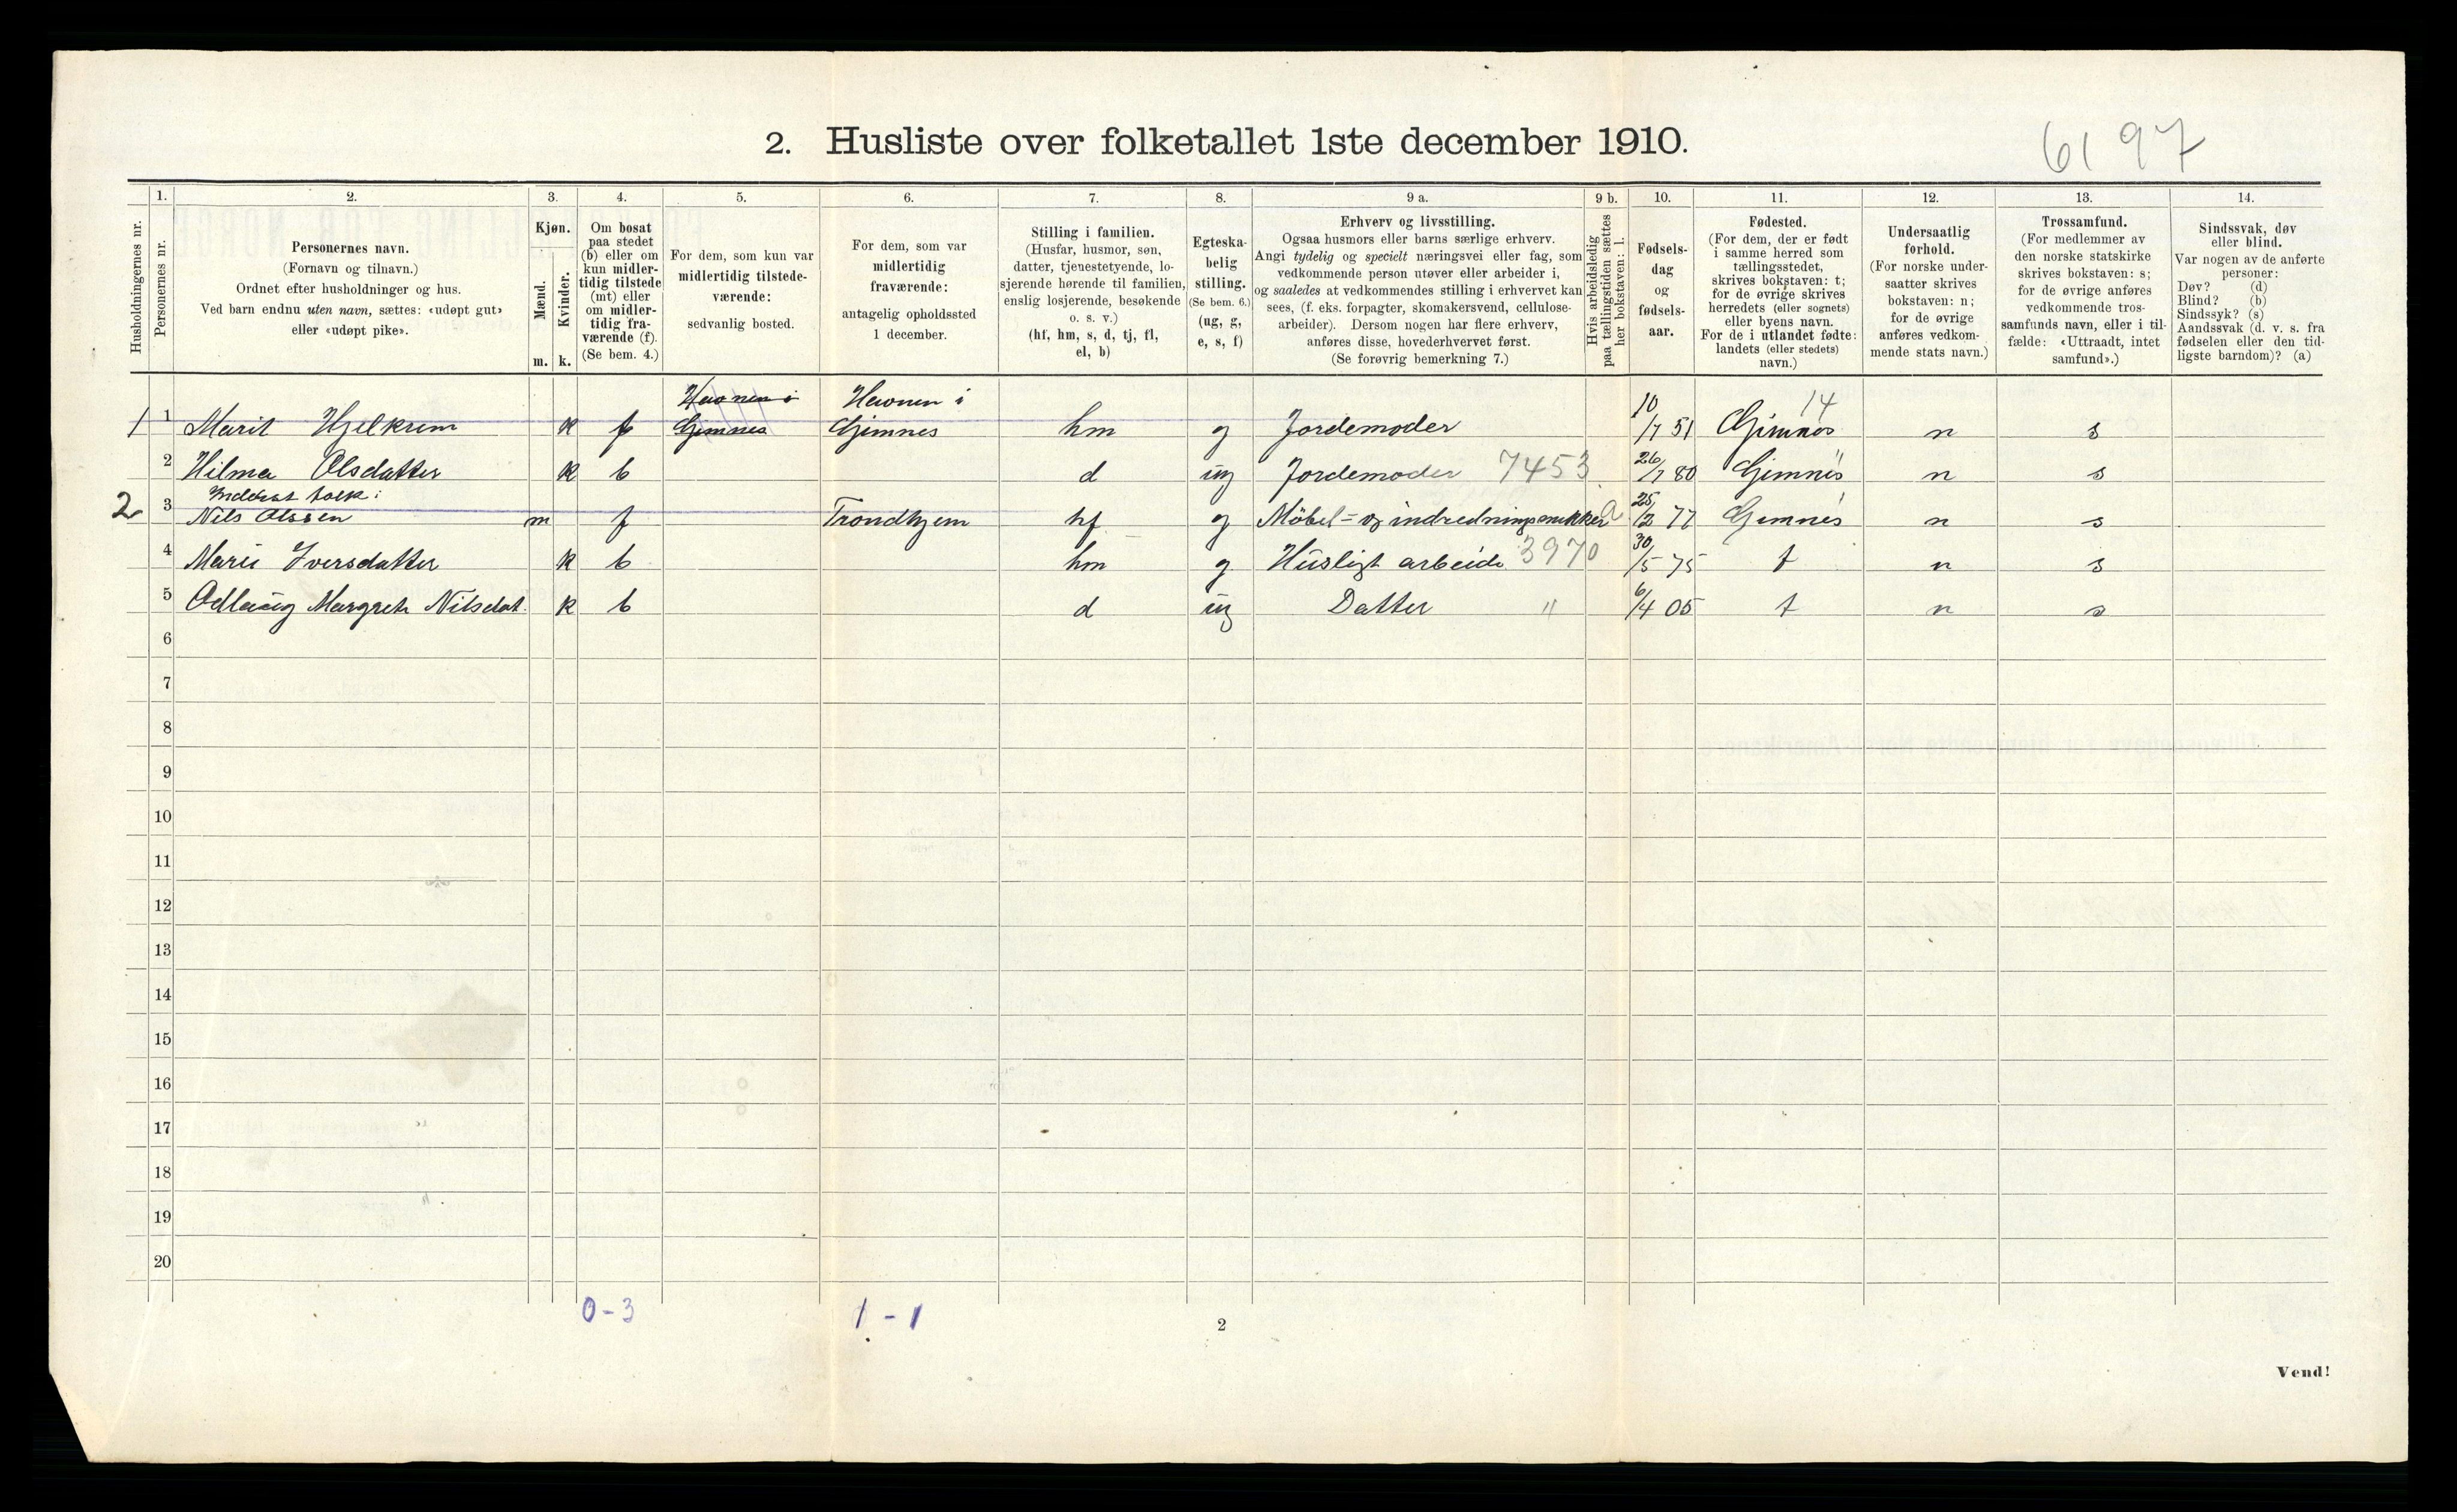 2. Husliste over folketallet 1ste december 1910.
6197
Husholdningernes nr.
1.
Personernes nr.
2.
Personernes navn.
(Fornavn og tilnavn.)
Ordnet efter husholdninger og hus.
Ved barn endnu uten navn, sættes: «udøpt gut»
eller «udøpt pike».
3.
Kjøn.
Mænd.
Kvinder.
m. k.
4.
Om bosat
paa stedet
(b) eller om
kun midler-
tidig tilstede
(mt) eller
om midler-
tidig fra-
værende (f).
(Se bem. 4.)
5.
For dem, som kun var
midlertidig tilstede-
værende:
sedvanlig bosted.
6.
For dem, som var
midlertidig
fraværende:
antagelig opholdssted
1 december.
7.
Stilling i familien.
(Husfar, husmor, søn,
datter, tjenestetyende, lo-
sjerende hørende til familien,
enslig losjerende, besøkende
o. s. v.)
(hf, hm, s, d, tj, fl,
el, b)
8.
Egteska-
belig
stilling.
(Se bem. 6.)
(ug, g,
e, s, f)
9 a.
Erhverv og livsstilling.
Ogsaa husmors eller barns særlige erhverv.
Angi tydelig og specielt næringsvei eller fag, som
vedkommende person utøver eller arbeider i,
og saaledes at vedkommendes stilling i erhvervet kan
sees, (f. eks. forpagter, skomakersvend, cellulose-
arbeider). Dersom nogen har flere erhverv,
anføres disse, hovederhvervet først.
(Se forøvrig bemerkning 7.)
9 b.
Hvis arbeidsledig
paa tællingstiden sættes
her bokstaven: l.
10.
Fødsels-
dag
og
fødsels-
aar.
11.
Fødested.
(For dem, der er født
i samme herred som
tællingsstedet,
skrives bokstaven: t;
for de øvrige skrives
herredets (eller sognets)
eller byens navn.
For de i utlandet fødte:
landets (eller stedets)
navn.)
12.
Undersaatlig
forhold.
(For norske under-
saatter skrives
bokstaven: n;
for de øvrige
anføres vedkom-
mende stats navn.)
13.
Trossamfund.
(For medlemmer av
den norske statskirke
skrives bokstaven: s;
for de øvrige anføres
vedkommende tros-
samfunds navn, eller i til-
fælde: «Uttraadt, intet
samfund».)
14.
Sindssvak, døv
eller blind.
Var nogen av de anførte
personer:
Døv? (d)
Blind? (b)
Sindssyk? (s)
Aandssvak (d. v. s. fra
fødselen eller den tid-
ligste barndom)? (a)
1 1 Marit Hjelkrem k f Gimnes Gimnes hm g Jordemoder 10/7 51 Gimnes 14 n s
2 Hilma Olsdatter k b d ug Jordemoder 7453 26/7 80 Gimnes n s
2 3 Inderst folk:
Nils Olssen m f Trondhjem hf g Möbel- og indredningssnikker 25/2 77 Gimnes n s
4 Marie Iversdatter k b hm g Husligt arbeide 3970 30/5 75 t n s
5 Odlaug Margrete Nilsdat. k b d ug Datter " 6/4 05 t n s
6
7
8
9
10
11
12
13
14
15
16
17
18
19
20
0-3
1-1
2
Vend!